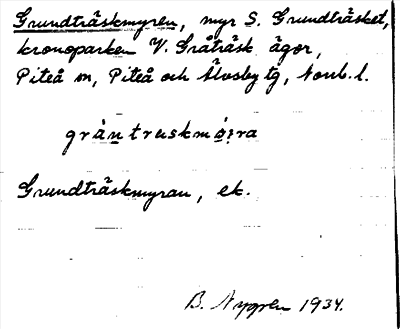 Grundträskmyren, myr S. Grundträsket,
kronoparken V. Gråträsk ägor,
Piteå sn, Piteå och Älvsby tg, Norrb. l.
grần truskm
Grundträskmyran, ek.
B. Nygren 1934.